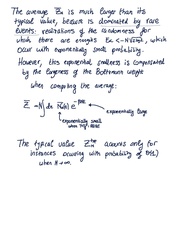 The average Z̄_N is much larger than its
typical value, because is dominated by rare
events: realizations of the randomness for
which there are energies E_α < -N√(ln 2), which
occur with exponentially small probability.
However, this exponential smallness is compensated
by the largeness of the Boltzmann weight
when computing the average:
exponentially large
exponentially small
The typical value Z_N^typ accounts only for
instances occurring with probability of O(1)
when N→∞.